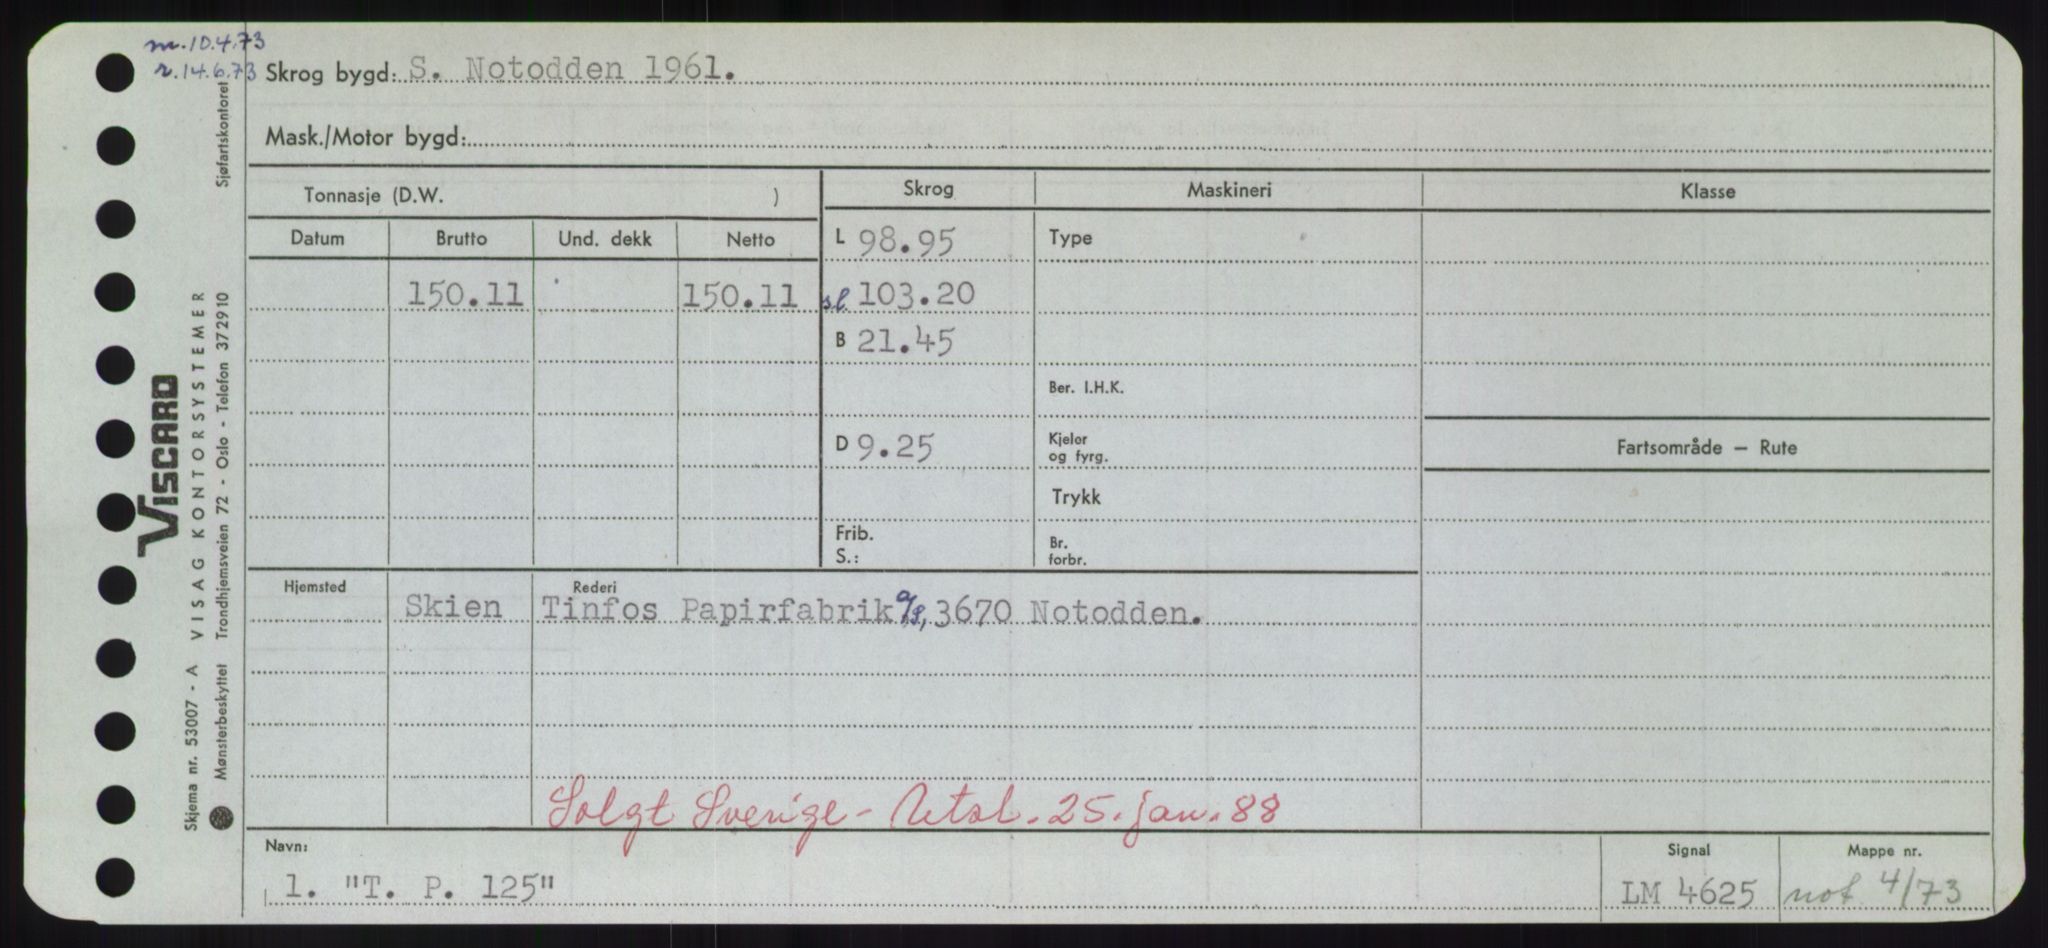 m. 10.4.73
r. 14.6.73
Skrog bygd: S. Notodden 1961.
Mask./Motor bygd:
Tonnasje (D.W. )
Skrog
Maskineri
Klasse
Datum
Brutto
Und. dekk
Netto
L 98.95
Type
150.11
150.11
sl. 103.20
B 21.45
Ber. I.H.K.
D 9.25
Kjeler
og fyrg.
Fartsområde — Rute
Trykk
Frib.
S.:
Br.
forbr.
Hjemsted
Rederi
Skien
Tinfos Papirfabrik a/s, 3670 Notodden.
Solgt Sverige - Utsl. 25. jan. 88
Navn:
1. "T. P. 125"
Signal
LM 4625
Mappe nr.
not 4/73
Sjøfartskontoret
VISCARD
VISAG KONTORSYSTEMER
Skjema nr. 53007 - A
Mønsterbeskyttet Trondhjemsveien 72 - Oslo - Telefon 372910